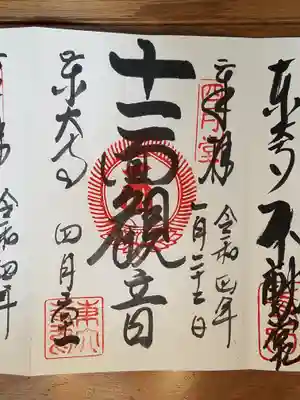 東大寺 不動堂
奉拝
令和四年
一月二十二日
四月堂
十一面観音
東大寺
四月堂
東大寺
拝
令和四年